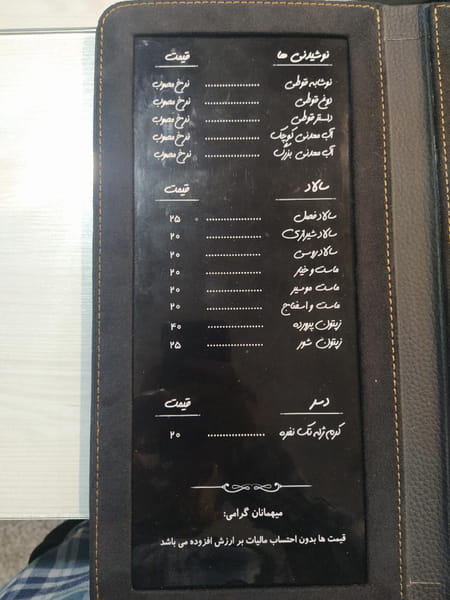 نوشیدنی ها قیمت
نوشابه قوطی ........ نرخ مصوب
دوغ قوطی ........ نرخ مصوب
دلستر قوطی ........ نرخ مصوب
آب معدنی کوچک ........ نرخ مصوب
آب معدنی بزرگ ........ نرخ مصوب
سالاد قیمت
سالاد فصل ........ ۲۵
سالاد شیرازی ........ ۲۰
سالاد روسی ........ ۲۰
ماست و خیار ........ ۲۰
ماست موسیر ........ ۲۰
ماست و اسفناج ........ ۲۰
زیتون پرورده ........ ۴۰
زیتون شور ........ ۲۵
دسر قیمت
کرم ژله تک نفره ........ ۲۰
میهمانان گرامی:
قیمت ها بدون احتساب مالیات بر ارزش افزوده می باشد